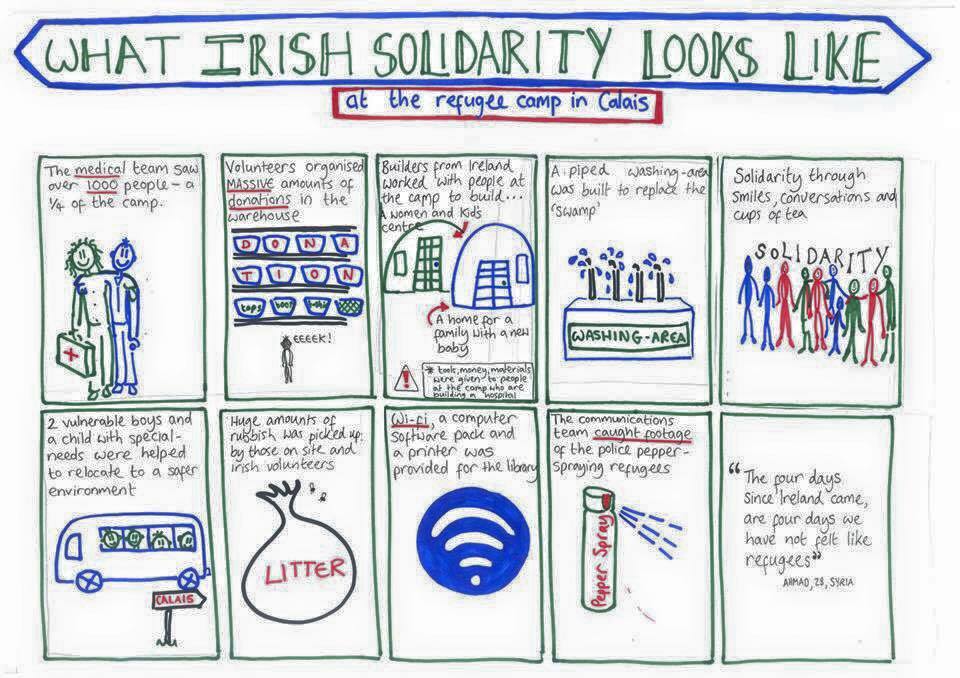 WHAT IRISH SOLIDARITY LOOKS LIKE
at the refugee camp in Calais
The medical team saw
over 1000 people - a
1/4 of the camp.
Volunteers organised
MASSIVE amounts of
donations in the
warehouse
DONA
TION
tops
EEEEK!
Builders from Ireland
worked with people at
the camp to build...
A women and Kid's
centre
A home for a
family with a new
baby
* tools, money, materials
were given to people
at the camp who are
building a hospital
A piped washing-area
was built to replace the
'swamp'
WASHING-AREA
Solidarity through
smiles, conversations and
cups of tea
SOLIDARITY
2 vulnerable boys and
a child with special-
needs were helped
to relocate to a safer
environment
CALAIS
Huge amounts of
rubbish was picked up by
those on site and
irish volunteers
LITTER
Wi-fi, a computer
software pack and
a printer was
provided for the library
The communications
team caught footage
of the police pepper-
spraying refugees
Pepper Spray
"The four days
since Ireland came,
are four days we
have not felt like
refugees"
AHMAD, 28, SYRIA